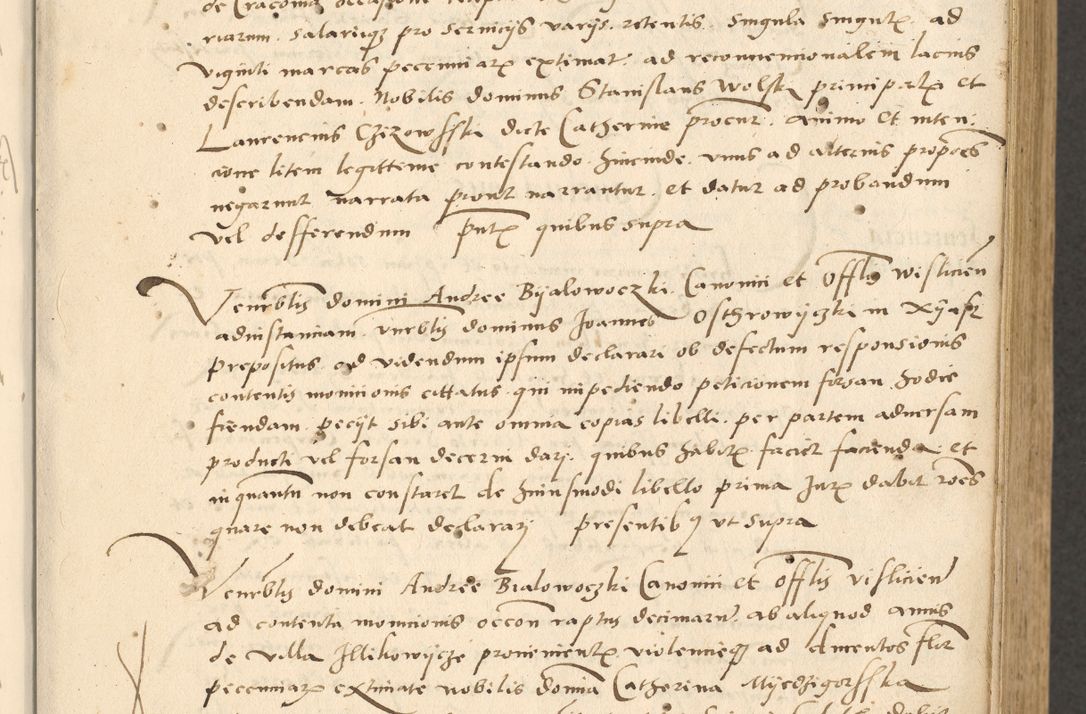 de Cracovia occasione
riarum salariiqz pro serviciis varijs retentis singula singulr ad
viginti marcas pecuniarz extimat ad reconvencionalem lacius
describendam Nobilis dominus Stanislaus Wolski principalr et
Laurencius Czizowsski dicte Catherine procur. animo et inten:
cione litem legittime contestando hincinde unus ad alterius propoes
negarunt narrata prout narrantur et datur ad probandum
vel defferendum pntr quibus supra
Venerblis domini Andree Bijalowoczki Canonici et Offlis Wislicien
adinstanciam venrblis dominus Joannes Osthrowijczki in Xijasz
prepositus ad videndum ipsum declarari ob defectum responsionis
contentis monicionis cittatus qui impediendo peticionem forsan hodie
fiendam peciit sibi ante omnia copias libelli per partem adversam
producti vel forsan decerni dari quibus habitr faciet facienda et
inquantu non constaret de huiusmodi libello prima Jurr dabit roes
quare non debeat declarari presentibus ut supra
Venerblis domini Andree Bialowoczki Canonici et Offlis Vislicien
ad contenta monicionis occon raptus decimarum ab aliquod annis
de villa Illikowijcze provenientr violencieqz ad ducentos flor
pecuniarz extimate nobilis domina Catherina Mijedzigorsska